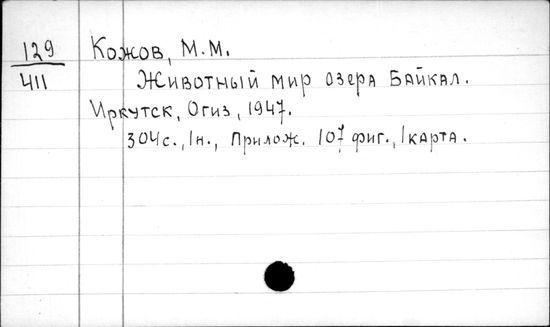 129
411
Кожов, М.М.
Животный мир озера Байкал.
Иркутск, Огиз, 1947.
304с., 1н., Прилож. 107 фиг., 1 карта.